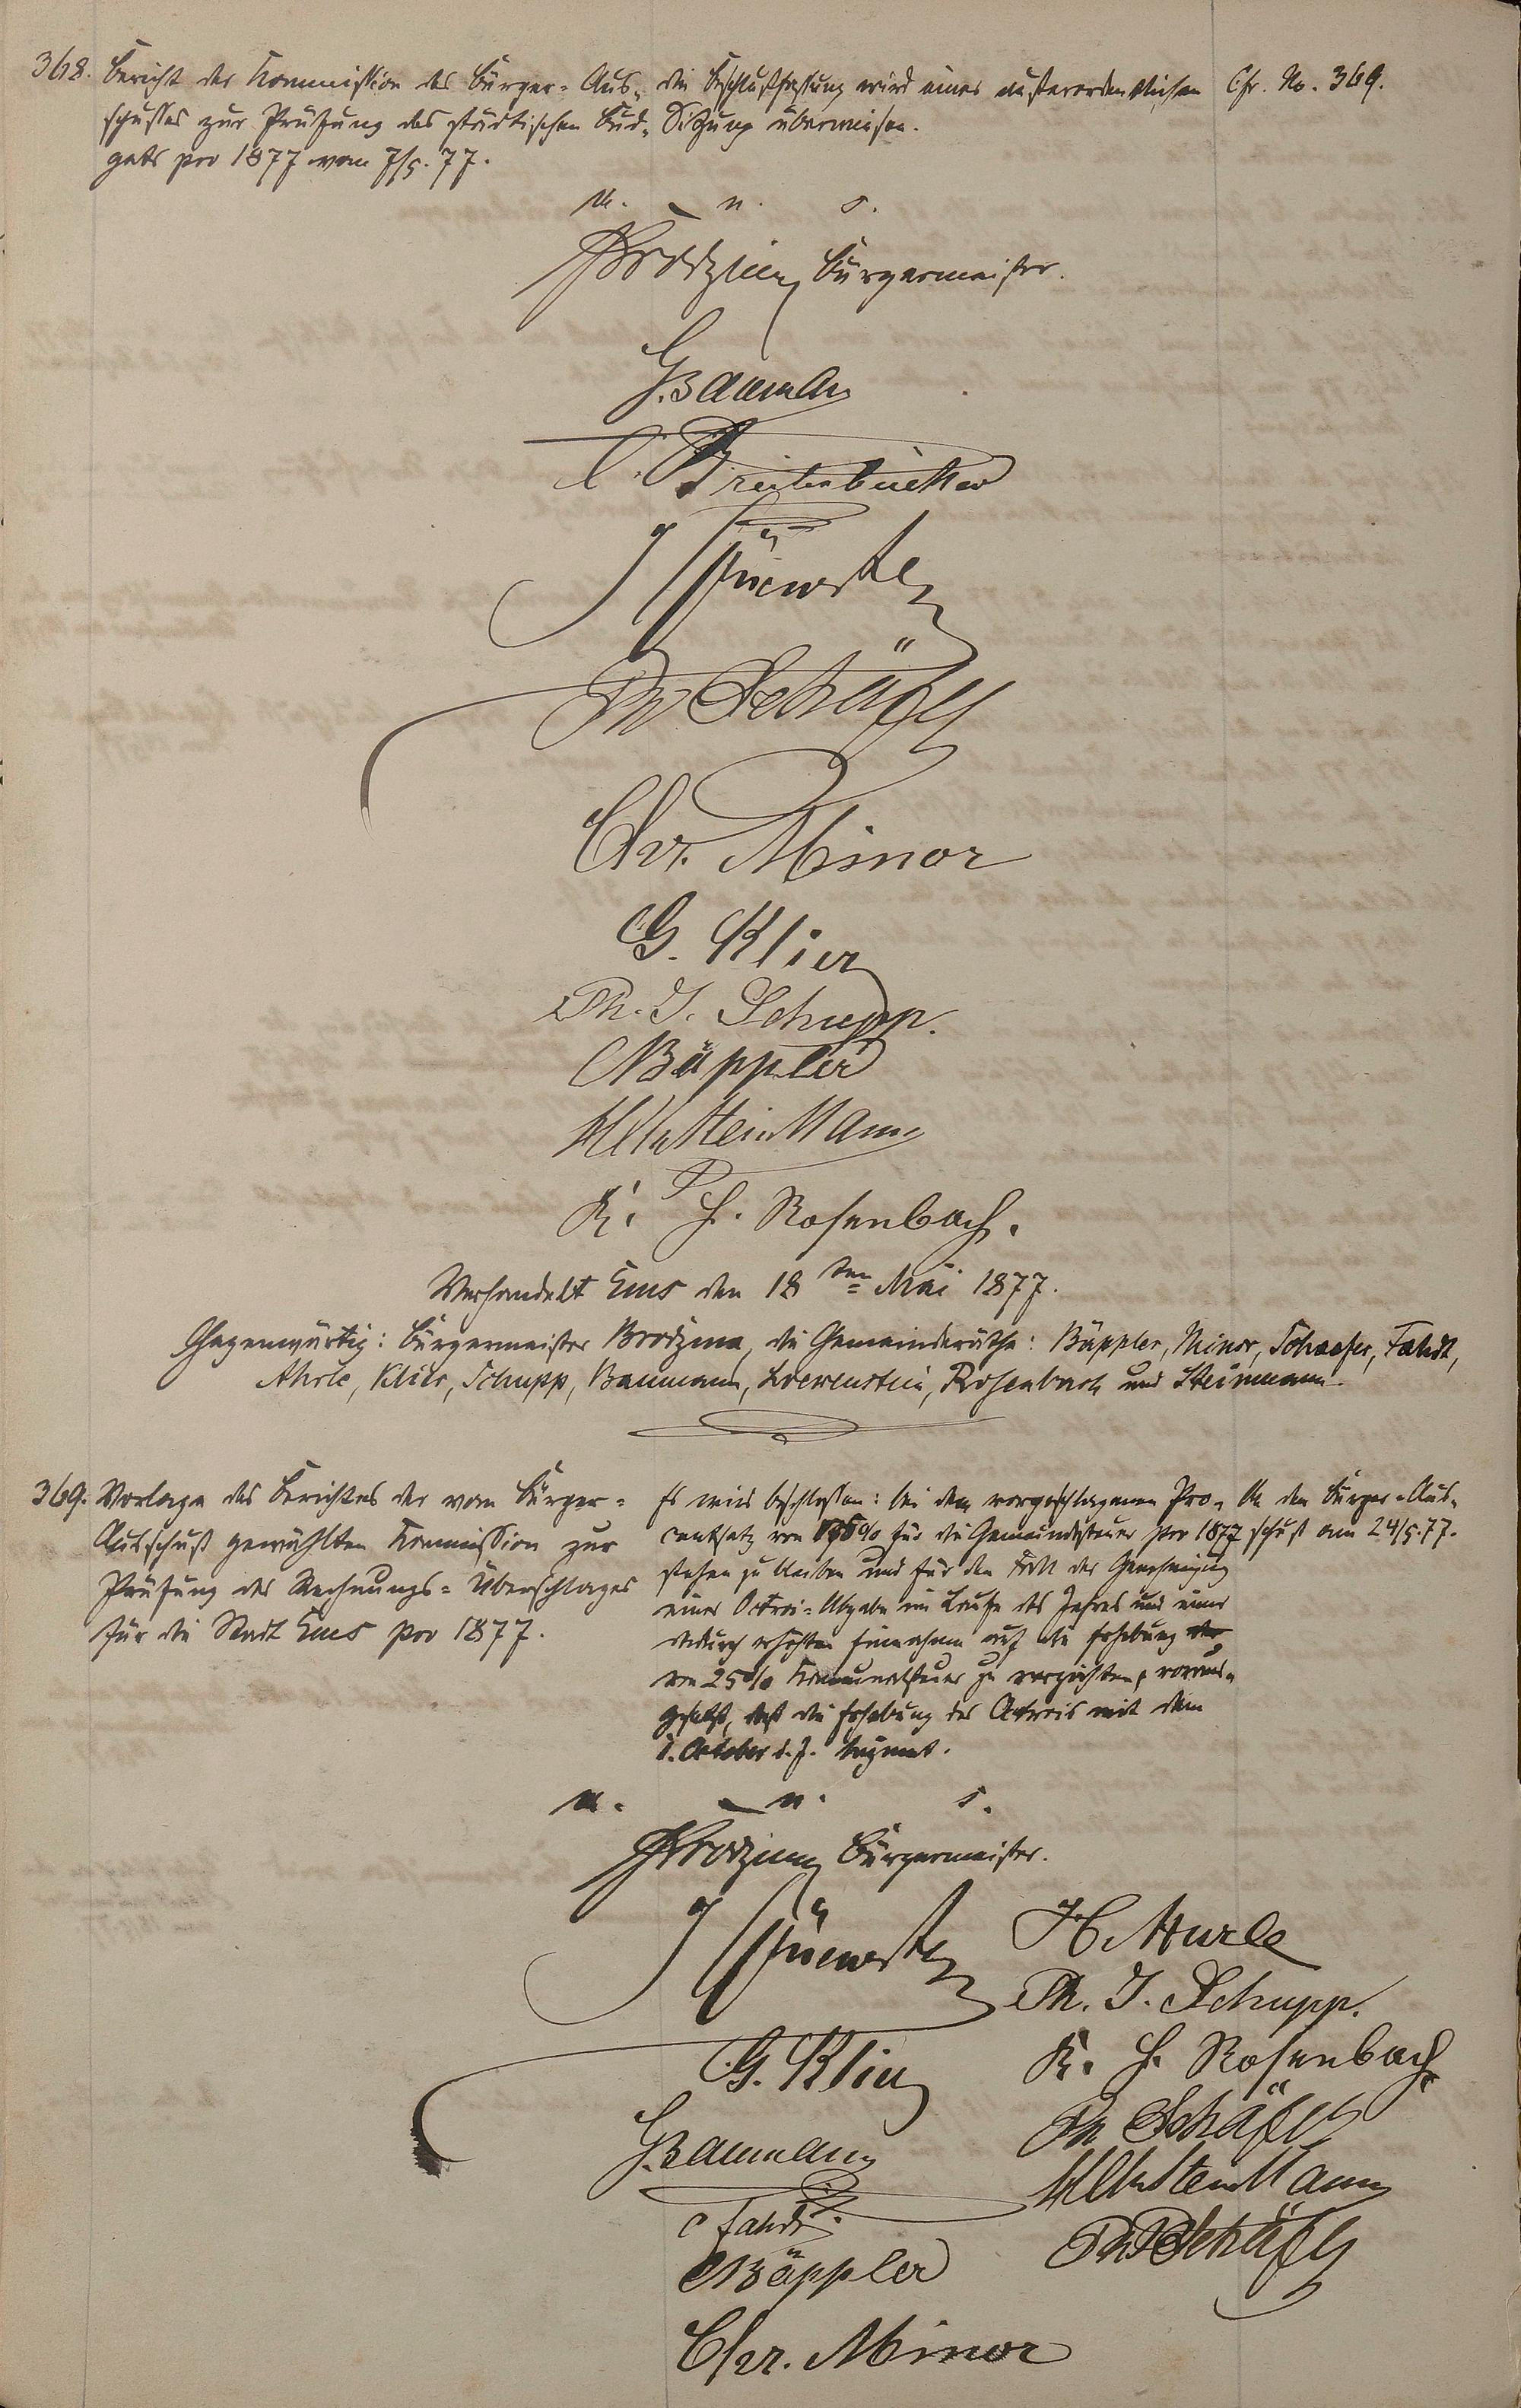 368. Bericht der Kommission des Bürger=Aus-
schusses zur Prüfung des städtischen Bud-
gets pro 1877 vom 7/5. 77.
die Beschlußfassung wird einer außerordentlichen
Sitzung überwiesen.
Cfr. No. 369.
u. n. s.
Brodzina Bürgermeister.
G. Baumann
C. Breitenbücker
J
Ph Schäfer
Chr. Minor
G. Klier
Ph. J. Schupp.
Bäppler
Steinmann
K. H. Rosenbach.
Verhandelt Ems den 18ten Mai 1877.
Gegenwärtig: Bürgermeister Brodzina, die Gemeinderäthe: Bäppler, Minor, Schaefer, Fahdt,
Ahrle, Klier, Schupp, Baumann, Loewenstein, Rosenbach und Steinmann.
369. Vorlage des Berichtes der vom Bürger=
Ausschuß gewählten Kommission zur
Prüfung des Rechnungs=Überschlages
für die Stadt Ems pro 1877.
Es wird beschlossen: bei dem vorgeschlagenen Pro-
centsatz von % für die Gemeindesteuer pro 1877
stehen zu bleiben und für den Fall der Genehmigung
einer Octroi=Abgabe im Laufe des Jahres und einer
dadurch erhöhten Einnahme auf die Erhebung der
von 25% Kommunalsteuer zu verzichten, voraus-
gesetzt, daß die Erhebung des Octrois mit dem
1. October d. J. beginnt.
An den Bürger=Aus-
schuß am 24/5.77.
u. n. s.
Brodzina Bürgermeister.
J
H. Ahrle
Ph. J. Schupp.
G. Klier
K. H. Rosenbach
G. Baumann
Ph Schäfer
Steinmann
C Fahdt.
Bäppler
Ph Schäfer
Chr. Minor